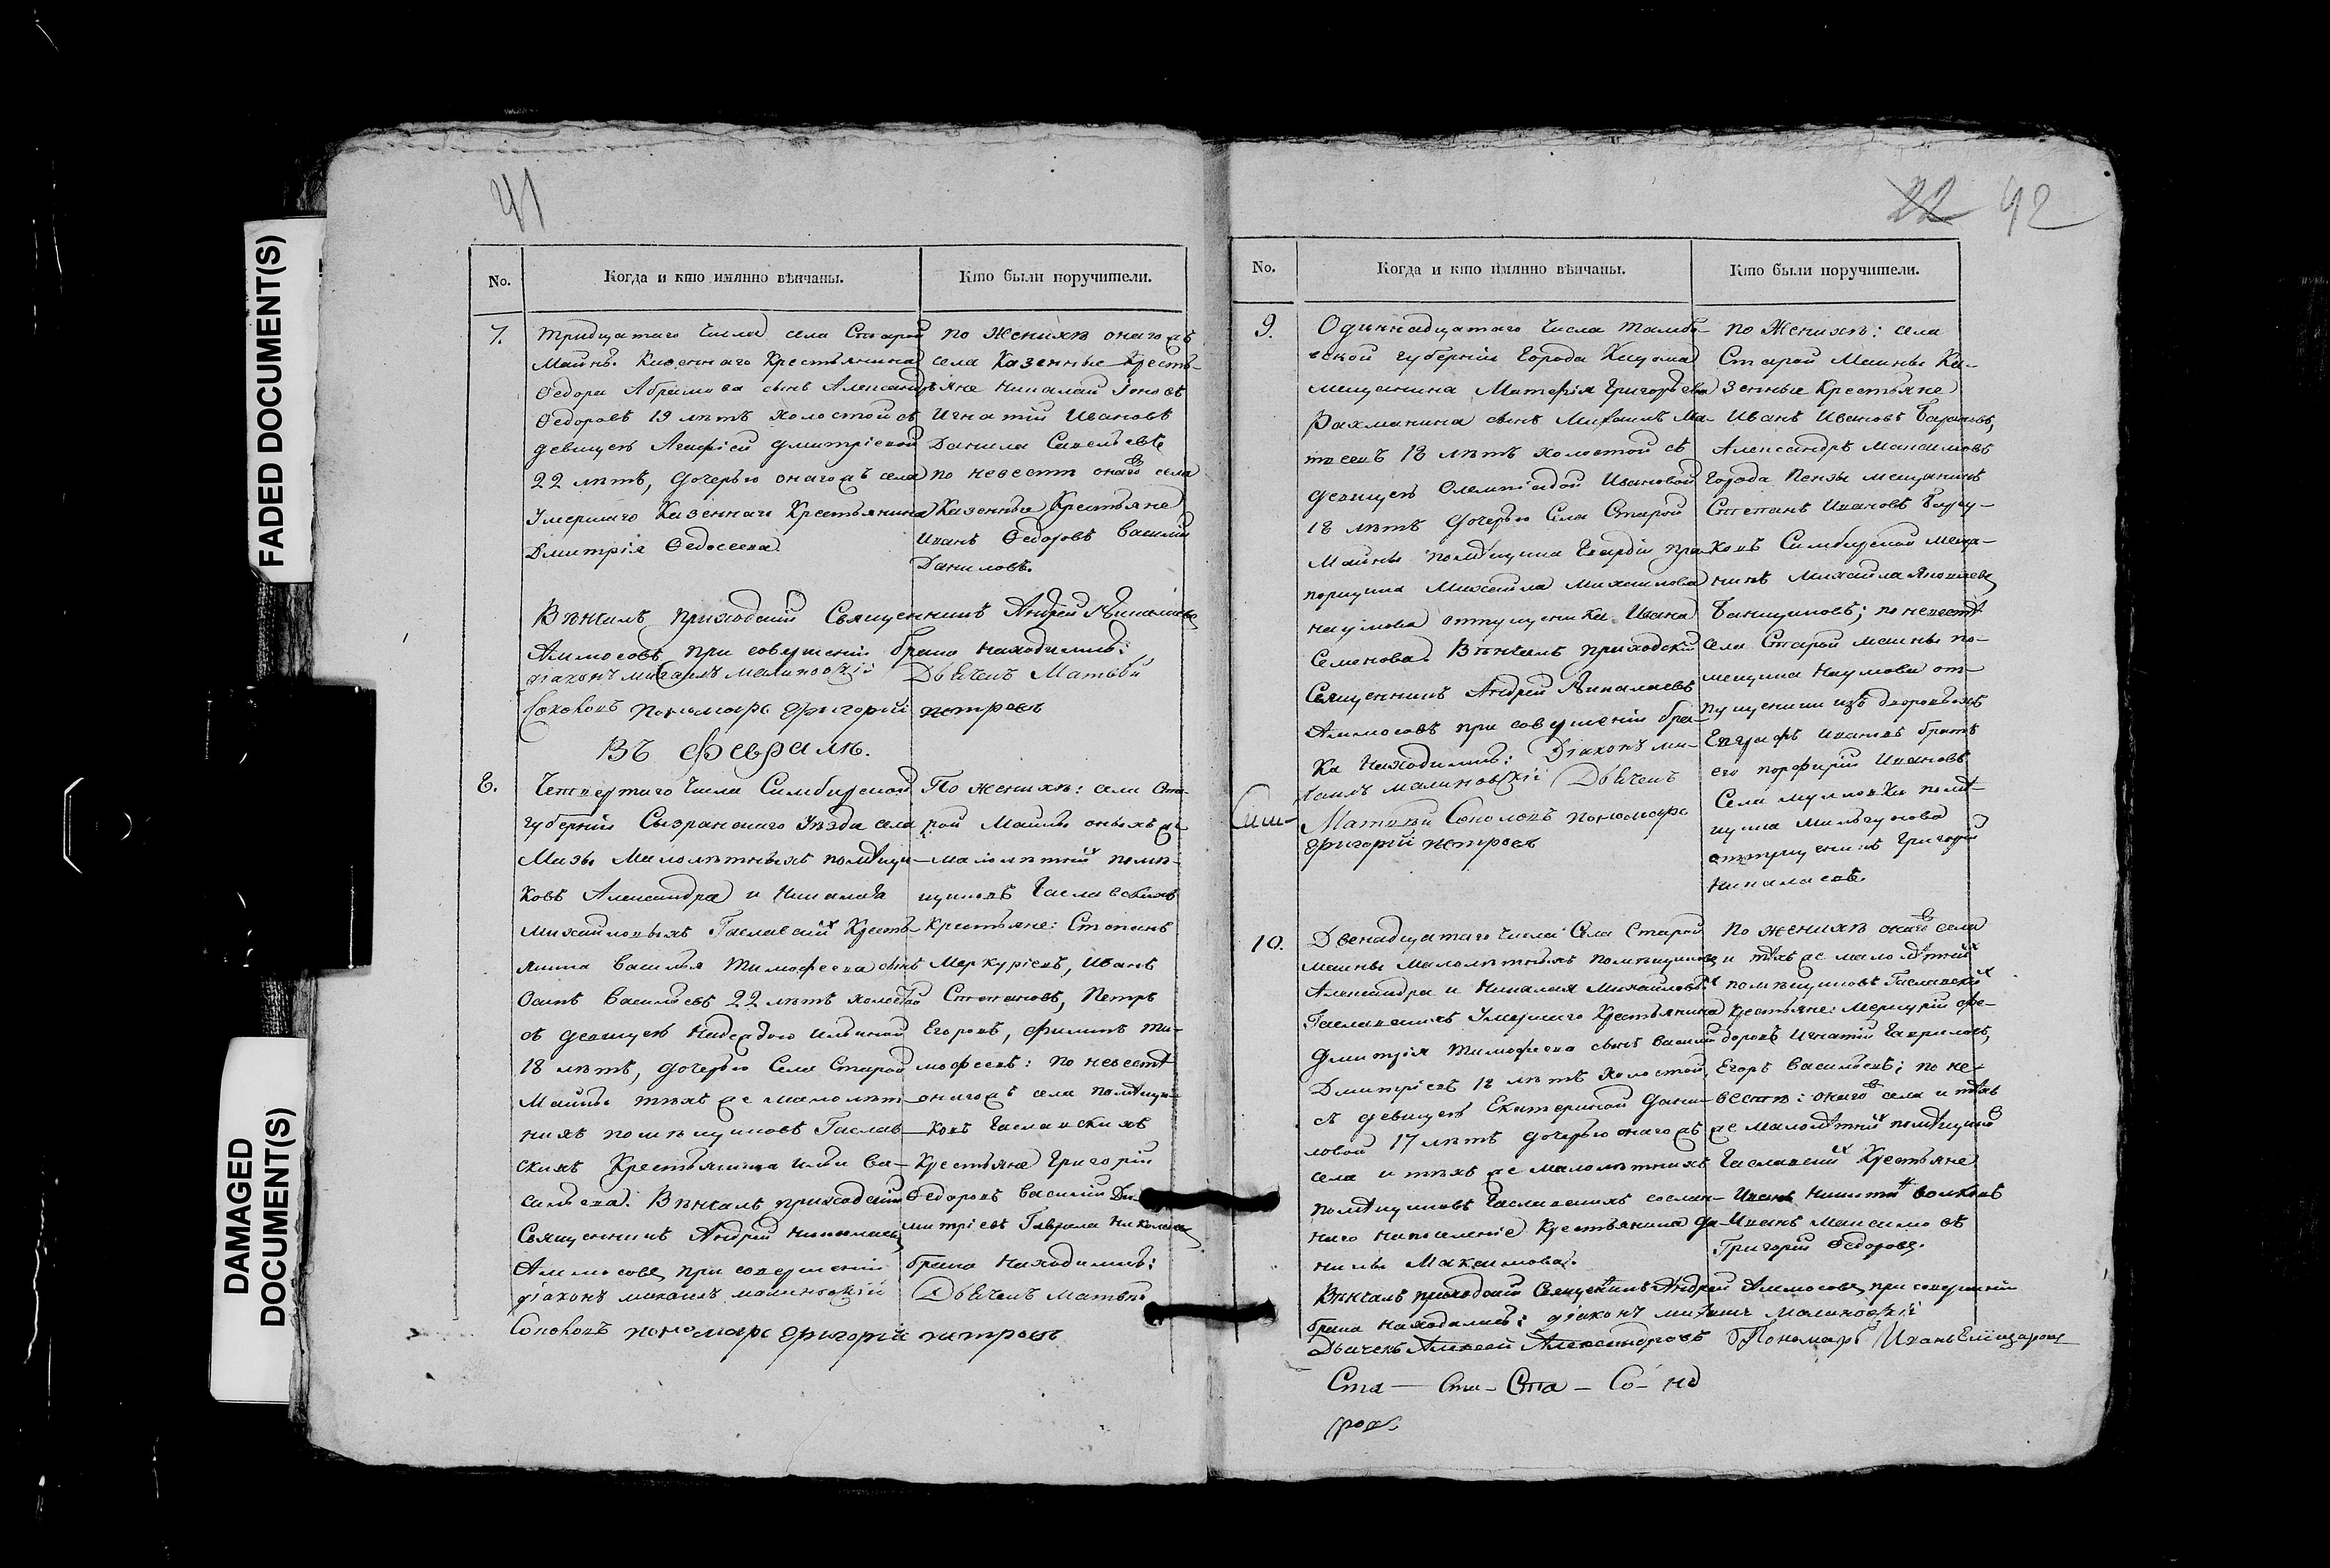 FADED DOCUMENT(S)
DAMAGED
DOCUMENT(S)
41
No.
Когда и кто имянно вѣнчаны.
Кто были поручители.
7.
тридцатаго числа села Старой
Майны Казеннаго Крестьянина
Ѳедора Абрамова сынъ Александръ
Ѳедоровъ 19 лѣтъ холостой съ
девицею Агафіей Дмитріевой
22 лѣтъ, дочерью онагожъ села
Умершаго Казеннаго Крестьянина
Дмитрія Ѳедосеева.
по Женихѣ онагожъ
села Казенные Кресть-
яне Николай Іоновъ
Игнатій Ивановъ
Данила Савельевъ
по невестѣ онаго села
Казенные Крестьяне
Иванъ Ѳедоровъ Василій
Даниловъ.
Вѣнчалъ приходскій Священникъ Андрей Николаевъ
Алмосовъ при совершеніи брака находились:
діаконъ михаилъ малиновскій Дьячекъ Матвѣй
Соколовъ пономарь григорій петровъ
Въ февралѣ.
8.
Четвертаго числа Симбирской
губерніи Сызранскаго Уѣзда села
Мазы Малолѣтныхъ помѣщи-
ковъ Александра и Николая
Михайловыхъ Гаславскихъ Кресть-
янина Василья Тимофеева сынъ
Осипъ Васильевъ 22 лѣтъ холостой
съ девицею Надеждою Ильиной
18 лѣтъ, дочерью Села Старой
Майны тѣхъ же малолѣт-
нихъ помѣщиковъ Гаслав-
скихъ Крестьянина Ильи Ва-
сильева. Вѣнчалъ приходскій
Священникъ Андрей Николаевъ
Алмосовъ при совершеніи
По женихѣ: села Ста-
рой Майны оныхъ же
малолѣтнихъ помѣ-
щиковъ Гаславскихъ
Крестьяне: Степанъ
Меркуріевъ, Иванъ
Степановъ, Петръ
Егоровъ, Филипъ Ти-
мофеевъ: по невестѣ
онагожъ села помѣщи-
ковъ Гаславскихъ
Крестьяне Григорій
Ѳедоровъ Василій Ди
митріевъ Гаврила Николаевъ
брака находились:
діаконъ михаилъ малиновскій Дьячекъ Матвѣй
Соколовъ пономарь григорій петровъ
22 42
No.
Когда и кто имянно вѣнчаны.
Кто были поручители.
9.
Одиннадцатаго числа Тамбо-
вской губерніи города
мещанина Матфія Григорьева
Рахманина сынъ Михаилъ Ма-
тееевъ 18 лѣтъ холостой съ
девицею Олемпіадой Ивановой
18 лѣтъ дочерью Села Старой
Майны помѣщика Гвардіи пра-
порщика Михаила Михаилова
Наумова отпущеника Ивана
Семенова. Вѣнчалъ приходскій
Священникъ Андрей Николаевъ
Алмосовъ при совершеніи бра-
ка Находились: Діаконъ ми-
хаилъ малиновскій Дьячекъ
Матвѣй Соколовъ пономарь
григорій петровъ
по Женихѣ: села
Старой Маины Ка-
зенные Крестьяне
Иванъ Ивановъ
Александръ Максимовъ
города Пензы мещанинъ
Степанъ Ивановъ
ковъ Симбирской меща-
нинъ Михаила
по невестѣ
села Старой маины по-
мещика Наумова от-
пущеники изъ дворовыхъ
Евграфъ Ивановъ братъ
его порфирій Ивановъ
Села мулловки помѣ-
щика Мильгунова
отпущеникъ Григорій
Николаевъ.
10.
Двенадцатаго числа Села Старой
маины Малолѣтныхъ помѣщиковъ
Александра и Николая Михайловыхъ
Гаславскихъ Умершаго Крестьянина
Дмитрія Тимофеева сынъ Василій
Дмитріевъ 18 лѣтъ Холостой,
съ девицею Екатериной Дани-
ловой 17 лѣтъ дочерью онагожъ
села и тѣхъ же малолѣтнихъ
помѣщиковъ Гаславскихъ сослан-
наго напоселеніе Крестьянина Да-
нилы Максимова.
По женихѣ онаго села
и тѣхъ же малолѣтнихъ
помѣщиковъ Гаславскихъ
Крестьяне: Меркурій Фе-
доровъ Игнатій Гавриловъ,
Егоръ Васильевъ; по не-
вестѣ: онаго села и тѣхъ
же малолѣтнихъ помѣщиковъ
Гаславскихъ Крестьяне
Иванъ Никитинъ Волковъ
Иванъ Максимовъ
Григорій Ѳедоровъ.
Вѣнчалъ приходскій Священникъ Андрей Алмосовъ при совершеніи
брака находились: діаконъ михаилъ малиновскій
Дьячекъ Алексей Александровъ Пономарь Иванъ
Ста — Ста - Ста - Со - на